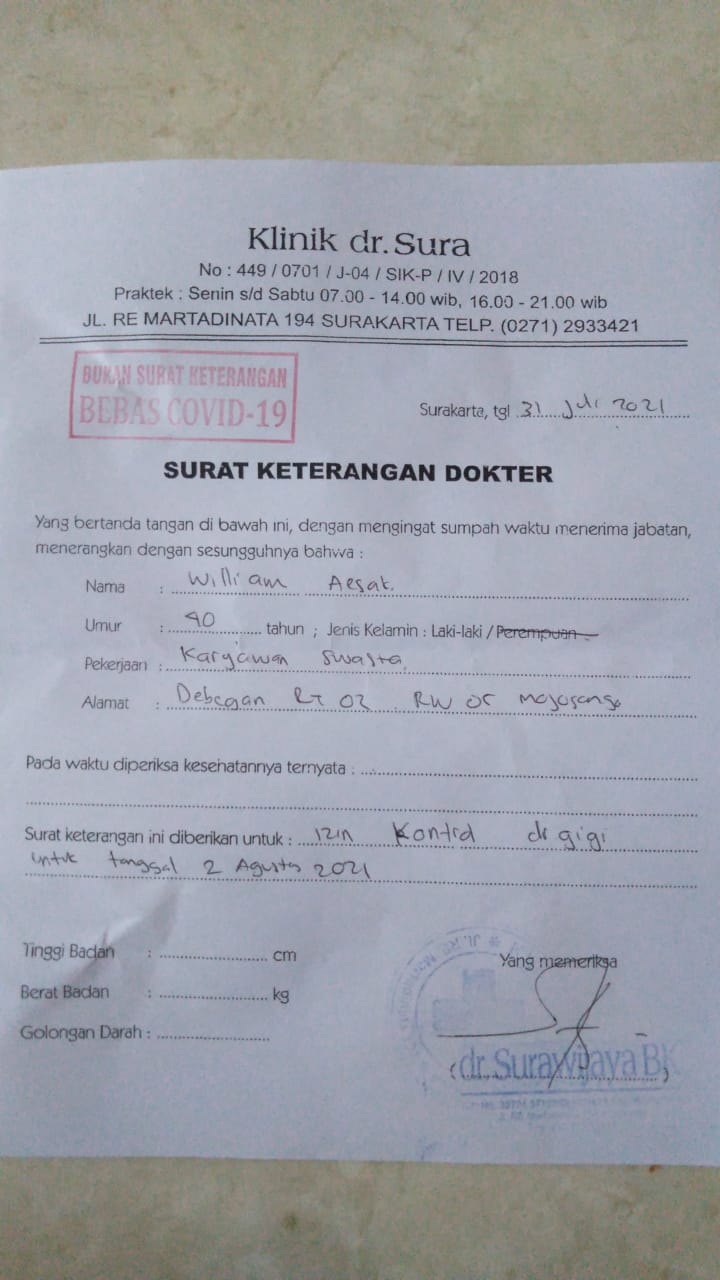 Klinik dr. Sura
No : 449 / 0701 / J-04 / SIK-P / IV / 2018
Praktek : Senin s/d Sabtu 07.00 - 14.00 wib, 16.00 - 21.00 wib
JL. RE MARTADINATA 194 SURAKARTA TELP. (0271) 2933421
BUKAN SURAT KETERANGAN
BEBAS COVID-19
Surakarta, tgl 31 Juli 2021
SURAT KETERANGAN DOKTER
Yang bertanda tangan di bawah ini, dengan mengingat sumpah waktu menerima jabatan,
menerangkan dengan sesungguhnya bahwa :
Nama : William Aesak
Umur : 40 tahun ; Jenis Kelamin : Laki-laki / Perempuan
Pekerjaan : Karyawan Swasta
Alamat : Debegan RT 02 RW 05 Mojosongo
Pada waktu diperiksa kesehatannya ternyata :
Surat keterangan ini diberikan untuk : izin Kontrol dr gigi
untuk tanggal 2 Agustus 2021
Tinggi Badan : cm
Berat Badan : kg
Golongan Darah :
Yang memeriksa
(dr. Surawijaya BK)